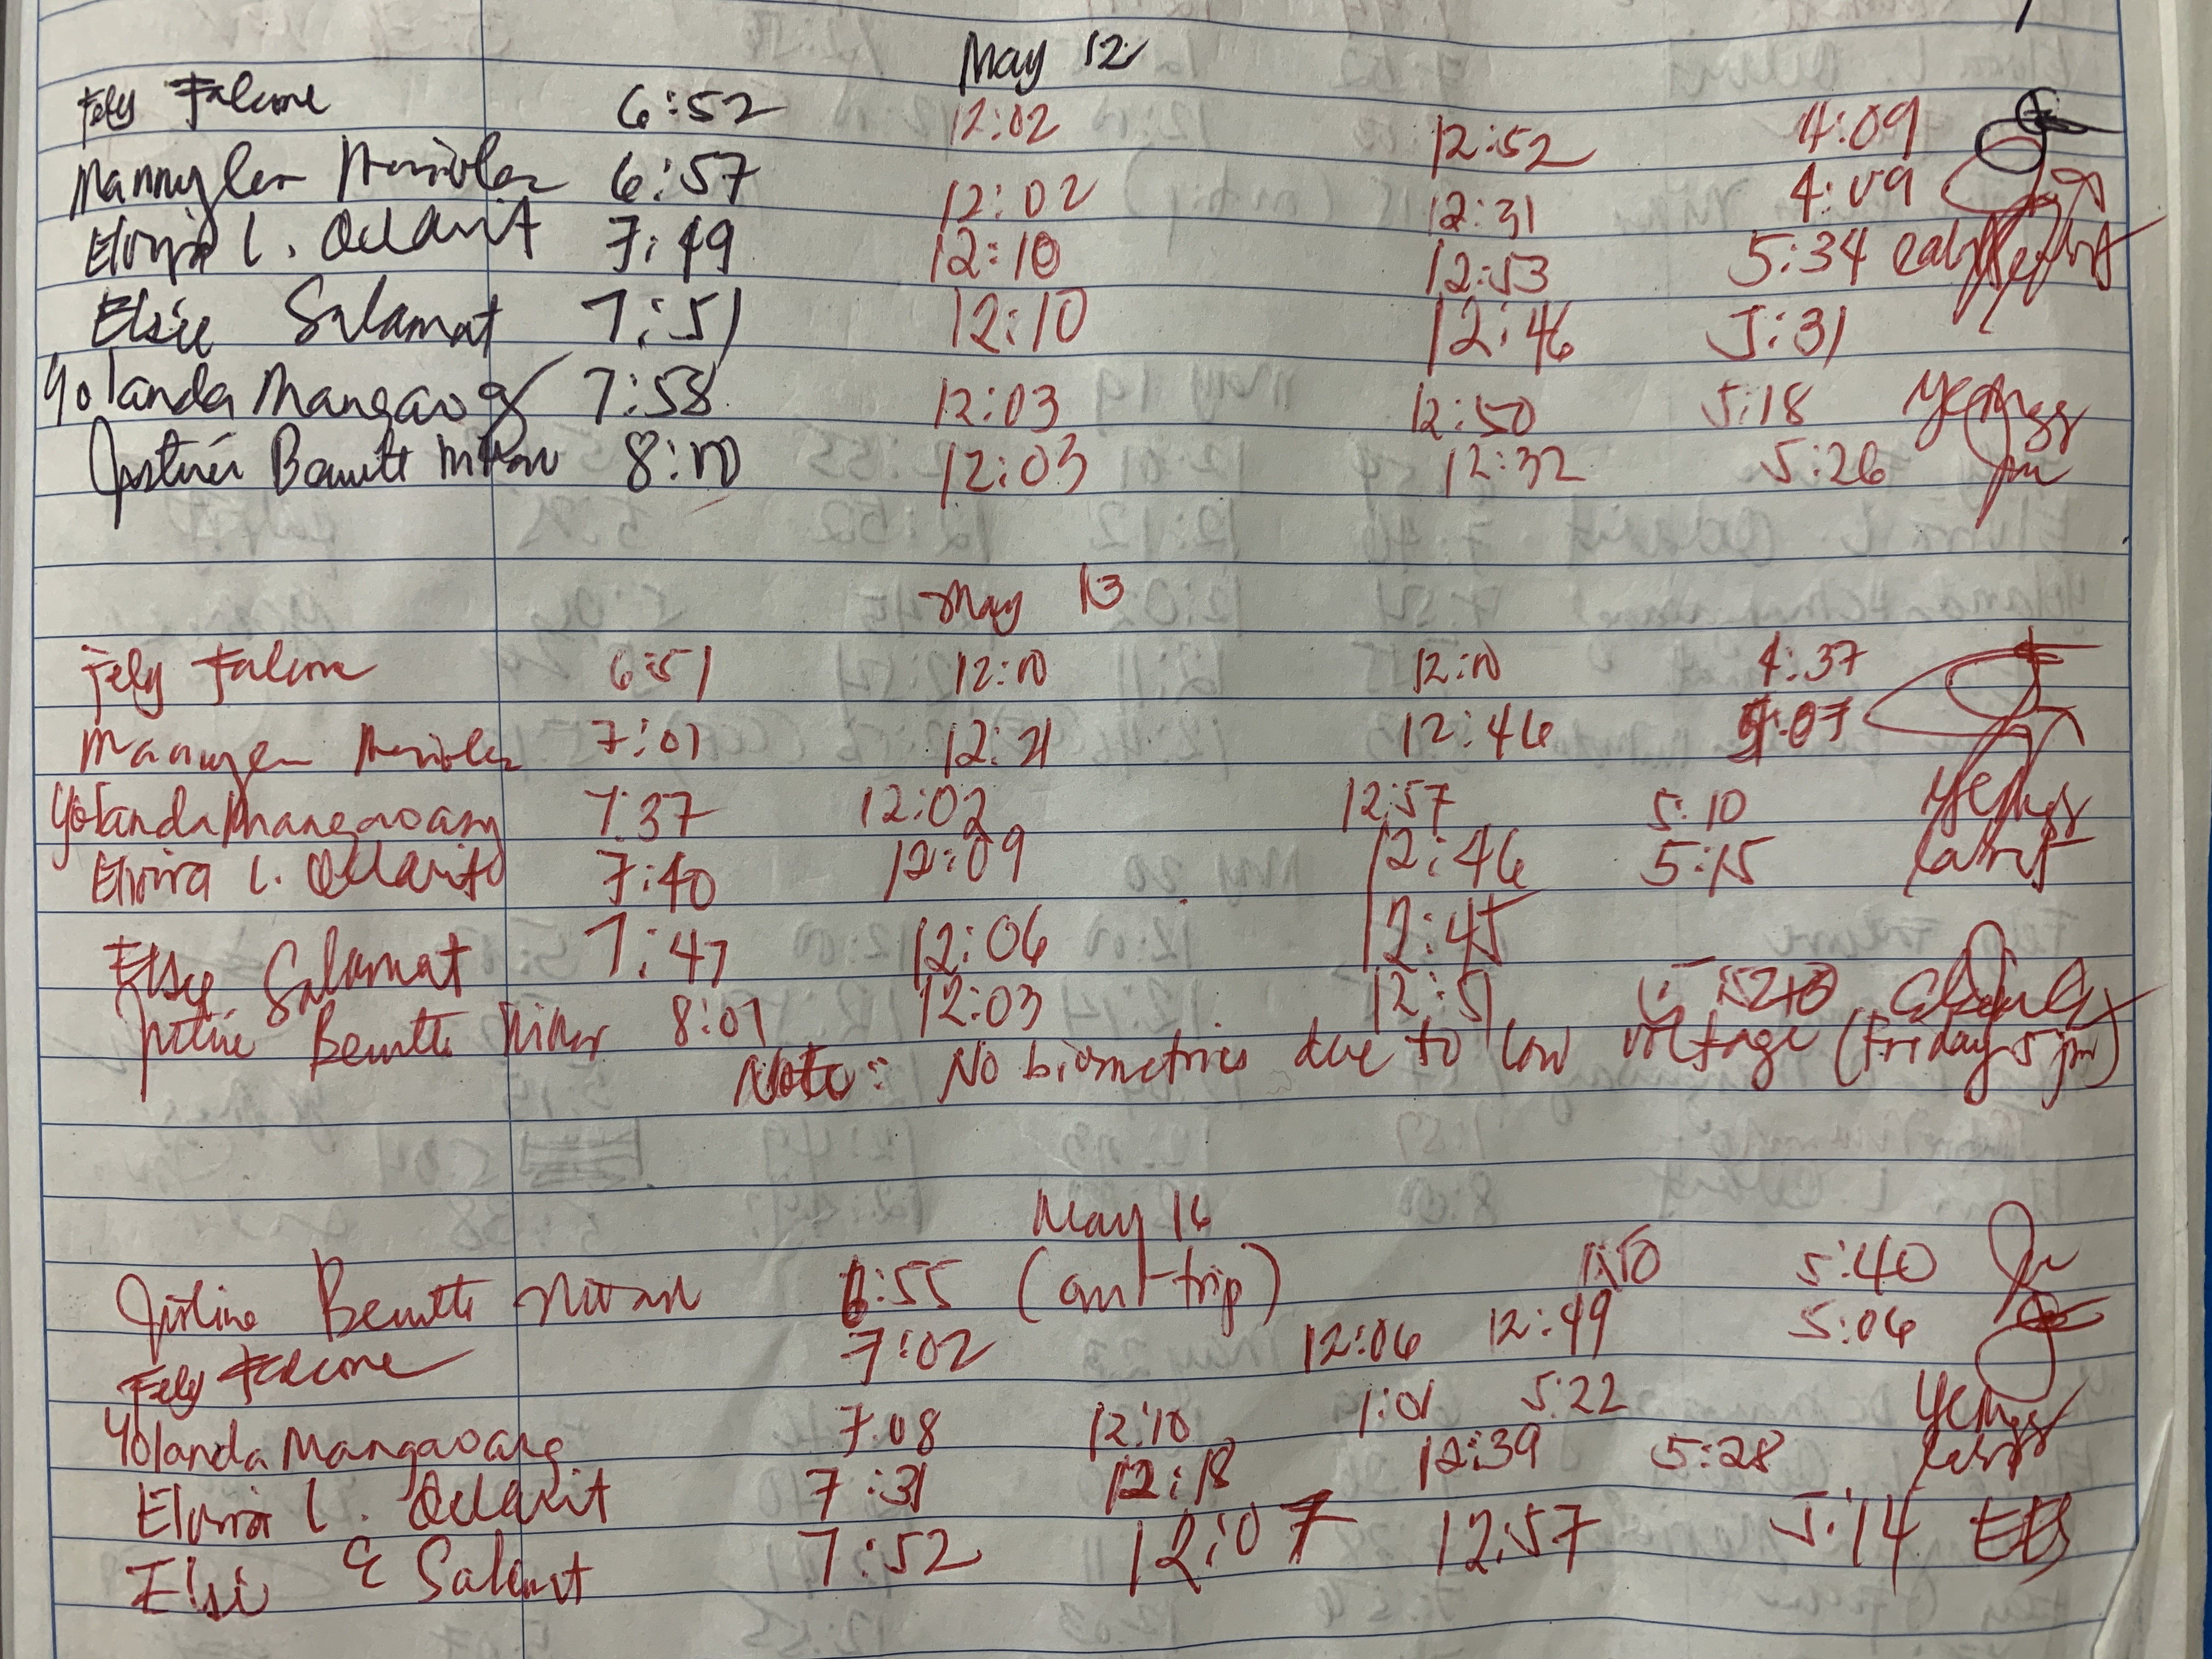 May 12
Fely Falcone 6:52 12:02 12:52 4:09
Mannylen 6:57 12:02 12:31 4:09
Elvira L. Odarit 7:49 12:10 12:53 5:34
Elsie Salamat 7:51 12:10 12:46 5:31
Yolanda Mangaoang 7:58 12:03 12:50 5:18
Justine Bennette 8:00 12:03 12:32 5:26
May 13
Fely Falcone 6:51 12:00 12:00 4:37
Mannylen 7:01 12:21 12:46
Yolanda Mangaoang 7:37 12:02 12:57 5:10
Elvira L. Odarit 7:40 12:09 12:46 5:15
Elsie Salamat 7:47 12:06 12:45
Justine Bennette 8:01 12:03 12:51
Note: No biometrics due to low voltage (Friday 5 pm)
May 16
Justine Bennette 6:55 (ant-trip) 5:40
Fely Falcone 7:02 12:06 12:49 5:06
Yolanda Mangaoang 7:08 12:10 1:01 5:22
Elvira L. Odarit 7:31 12:18 12:39 5:28
Elsie E Salamat 7:52 12:07 12:57 5:14